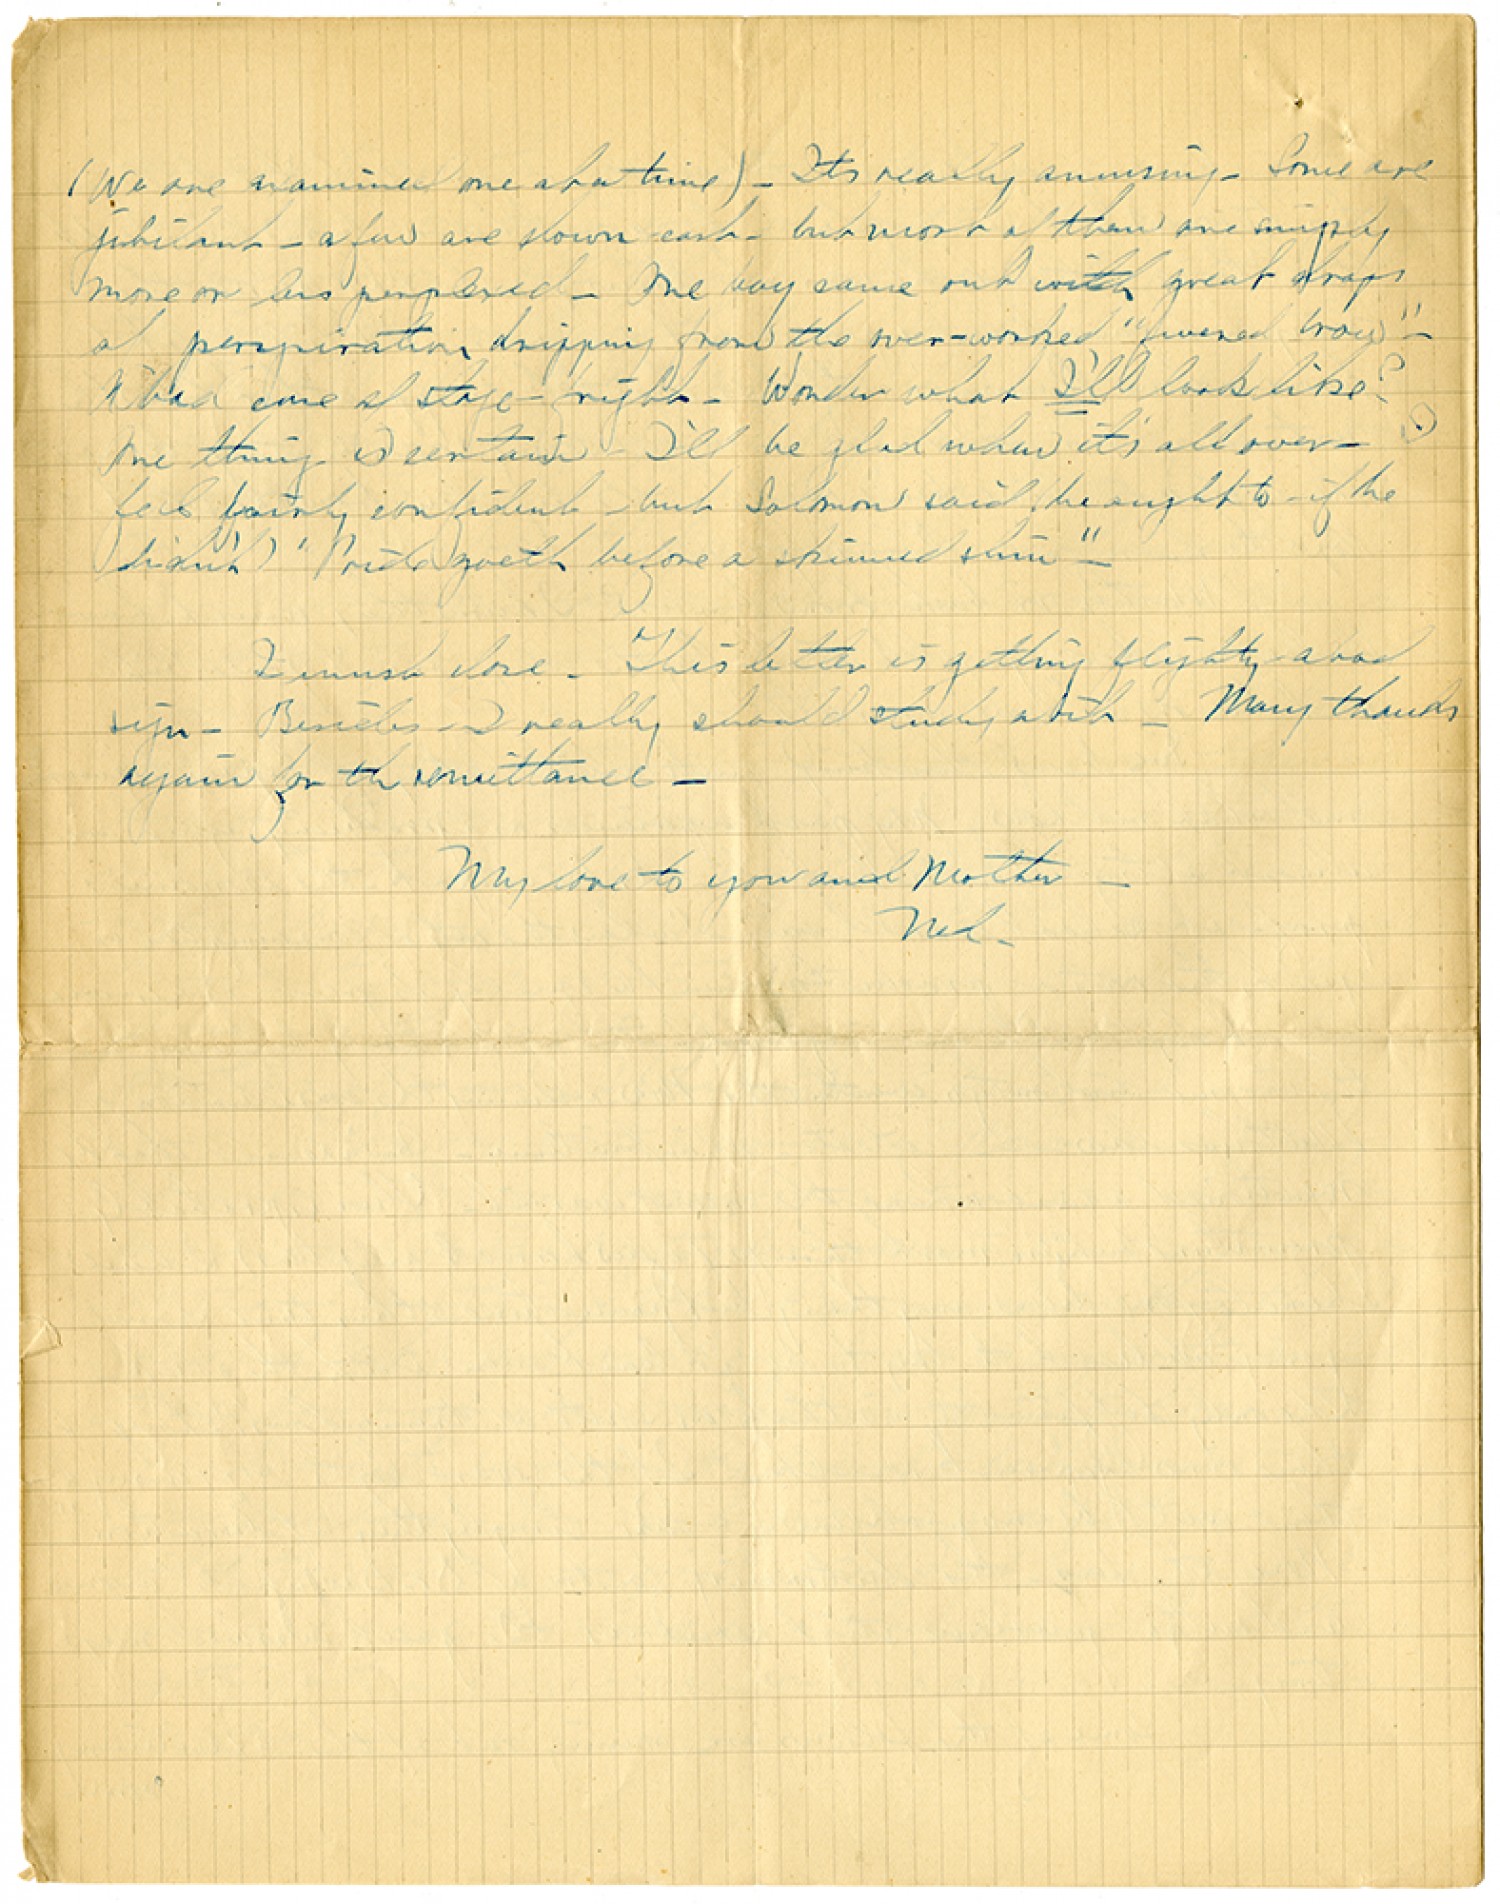 (We are examined one at a time) – Its really amusing – Some are
jubilant – a few are down-cast – but most of them are simply
more or less perplexed – One boy came out with great drops
of perspiration dripping from the over-worked "fevered brow" –
A bad case of stage-fright – Wonder what I'll look like?
One thing is certain – I'll be glad when it's all over –
feel fairly confident – but Solomon said (he ought to – if he
didn't) "Pride goeth before a skinned shin" –
I must close – This letter is getting flighty – a bad
sign – Besides – I really should study a bit – Many thanks
again for th remittance –
My love to you and Mother –
Ned –